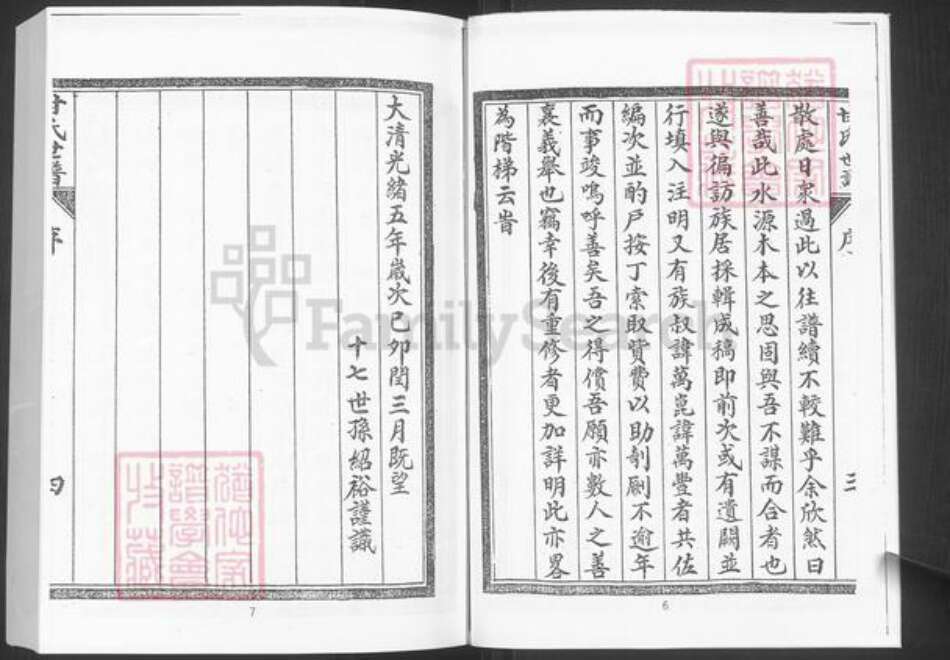 甘氏世譜 序 三
散處日衆過此以往譜續不較難乎余欣然曰
善哉此水源木本之思固與吾不謀而合者也
遂與徧訪族居採輯成稿即前次或有遺闕並
行填入注明又有族叔諱萬崑諱萬豐者共佐
編次並酌戶按丁索取貲費以助剞劂不逾年
而事竣嗚呼善矣吾之得償吾願亦數人之善
襄義舉也竊幸後有重修者更加詳明此亦畧
為階梯云旹
6
大清光緒五年歲次己卯閏三月既望
十七世孫紹裕謹識
四
7
FamilySearch